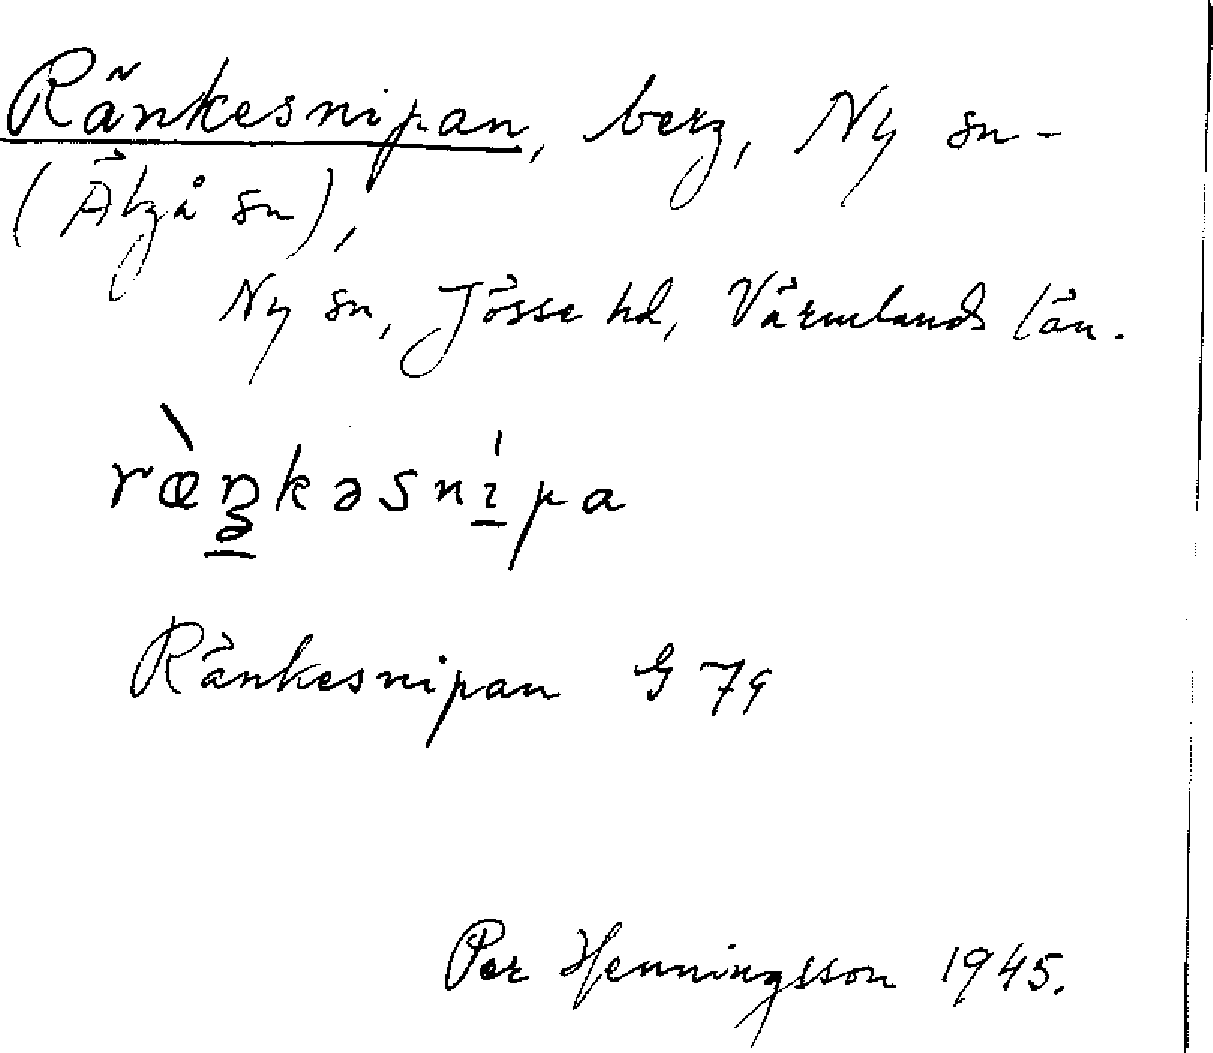 Ränkesnipan, berg, Ny sn -
(Älgå sn),
Ny sn, Jösse hd, Värmlands län.
ræ̀ŋkəsnípa
Ränkesnipan G 79
Per Henningsson 1945.